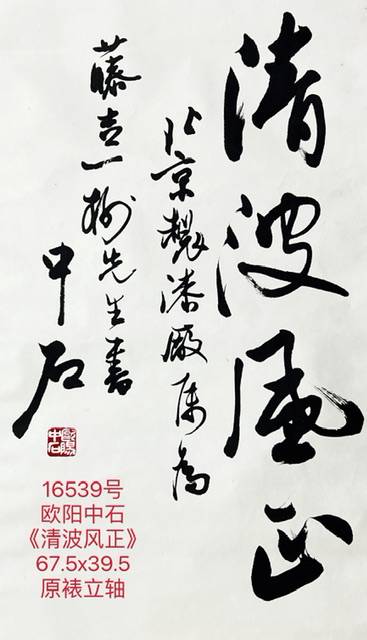 清波風正
北京製漆廠属為
藤吉一樹先生書
中石
歐陽中石
16539号
欧阳中石
《清波风正》
67.5x39.5
原裱立轴